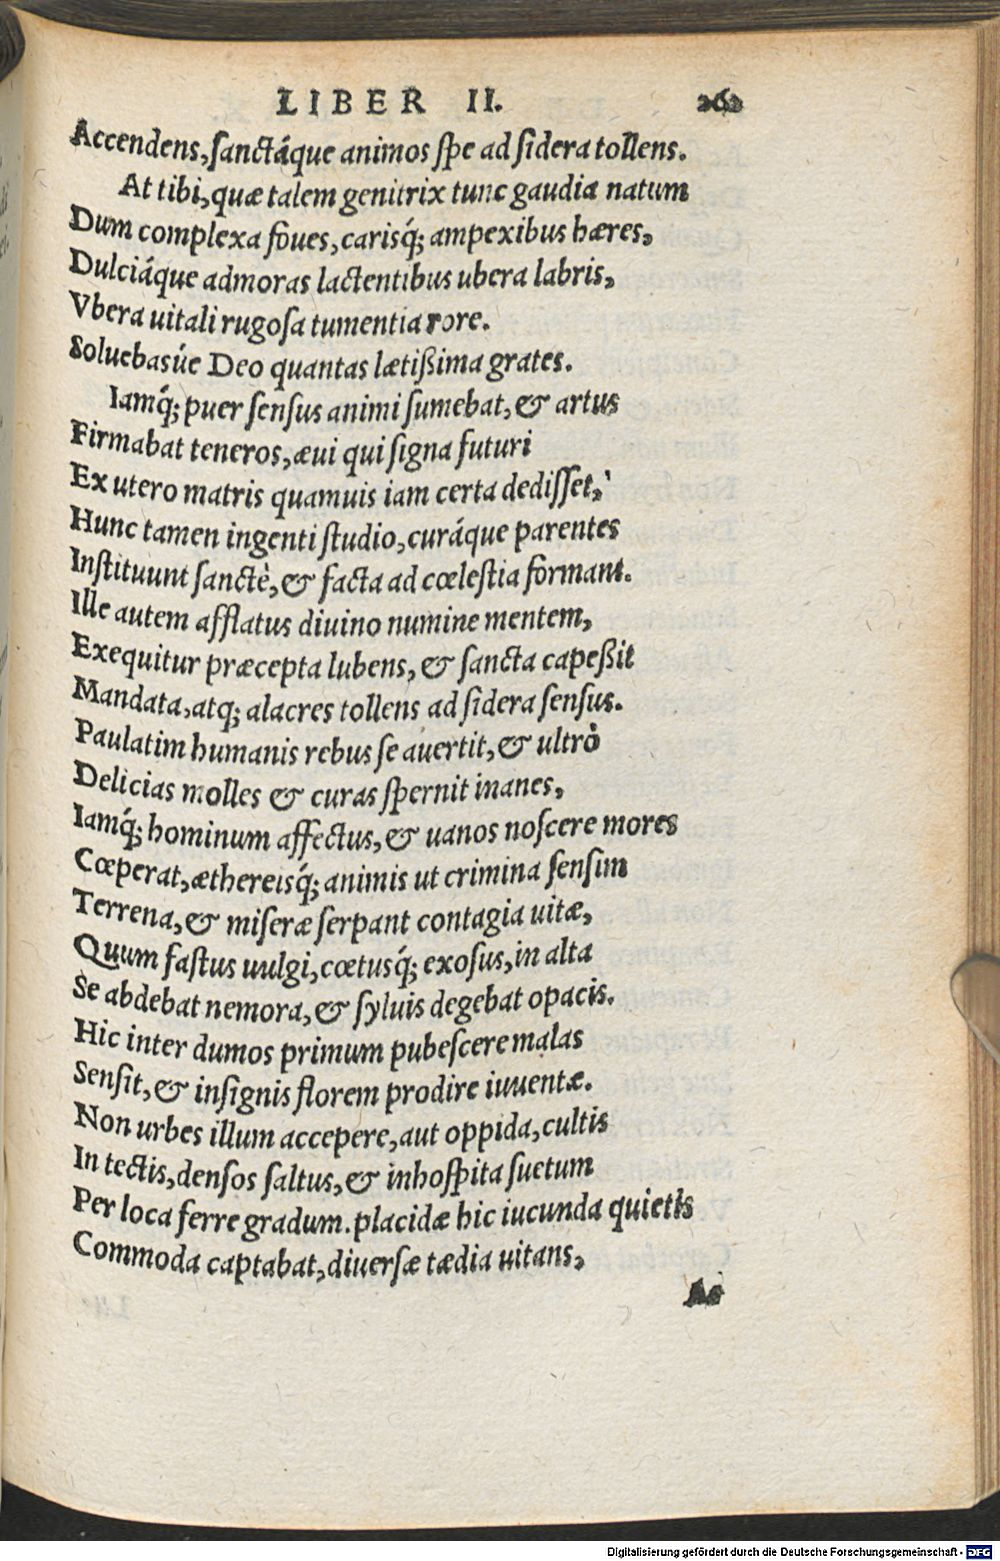 LIBER II. 262
Accendens, sanctáque animos spe ad sidera tollens.
At tibi, quæ talem genitrix tunc gaudia natum
Dum complexa foues, carisq́; ampexibus hæres,
Dulciáque admoras lactentibus ubera labris,
Vbera uitali rugosa tumentia rore.
Soluebasúe Deo quantas lætißima grates.
Iamq́; puer sensus animi sumebat, & artus
Firmabat teneros, æui qui signa futuri
Ex utero matris quamuis iam certa dedisset,
Hunc tamen ingenti studio, curáque parentes
Instituunt sanctè, & facta ad cœlestia formant.
Ille autem afflatus diuino numine mentem,
Exequitur præcepta lubens, & sancta capeßit
Mandata, atq; alacres tollens ad sidera sensus.
Paulatim humanis rebus se auertit, & ultrò
Delicias molles & curas spernit inanes,
Iamq́; hominum affectus, & uanos noscere mores
Cœperat, æthereisq́; animis ut crimina sensim
Terrena, & miseræ serpant contagia uitæ,
Quum fastus uulgi, cœtusq́; exosus, in alta
Se abdebat nemora, & syluis degebat opacis.
Hic inter dumos primum pubescere malas
Sensit, & insignis florem prodire iuuentæ.
Non urbes illum accepere, aut oppida, cultis
In tectis, densos saltus, & inhospita suetum
Per loca ferre gradum. placidæ hic iucunda quietis
Commoda captabat, diuersæ tædia uitans,
Ac
Digitalisierung gefördert durch die Deutsche Forschungsgemeinschaft - DFG